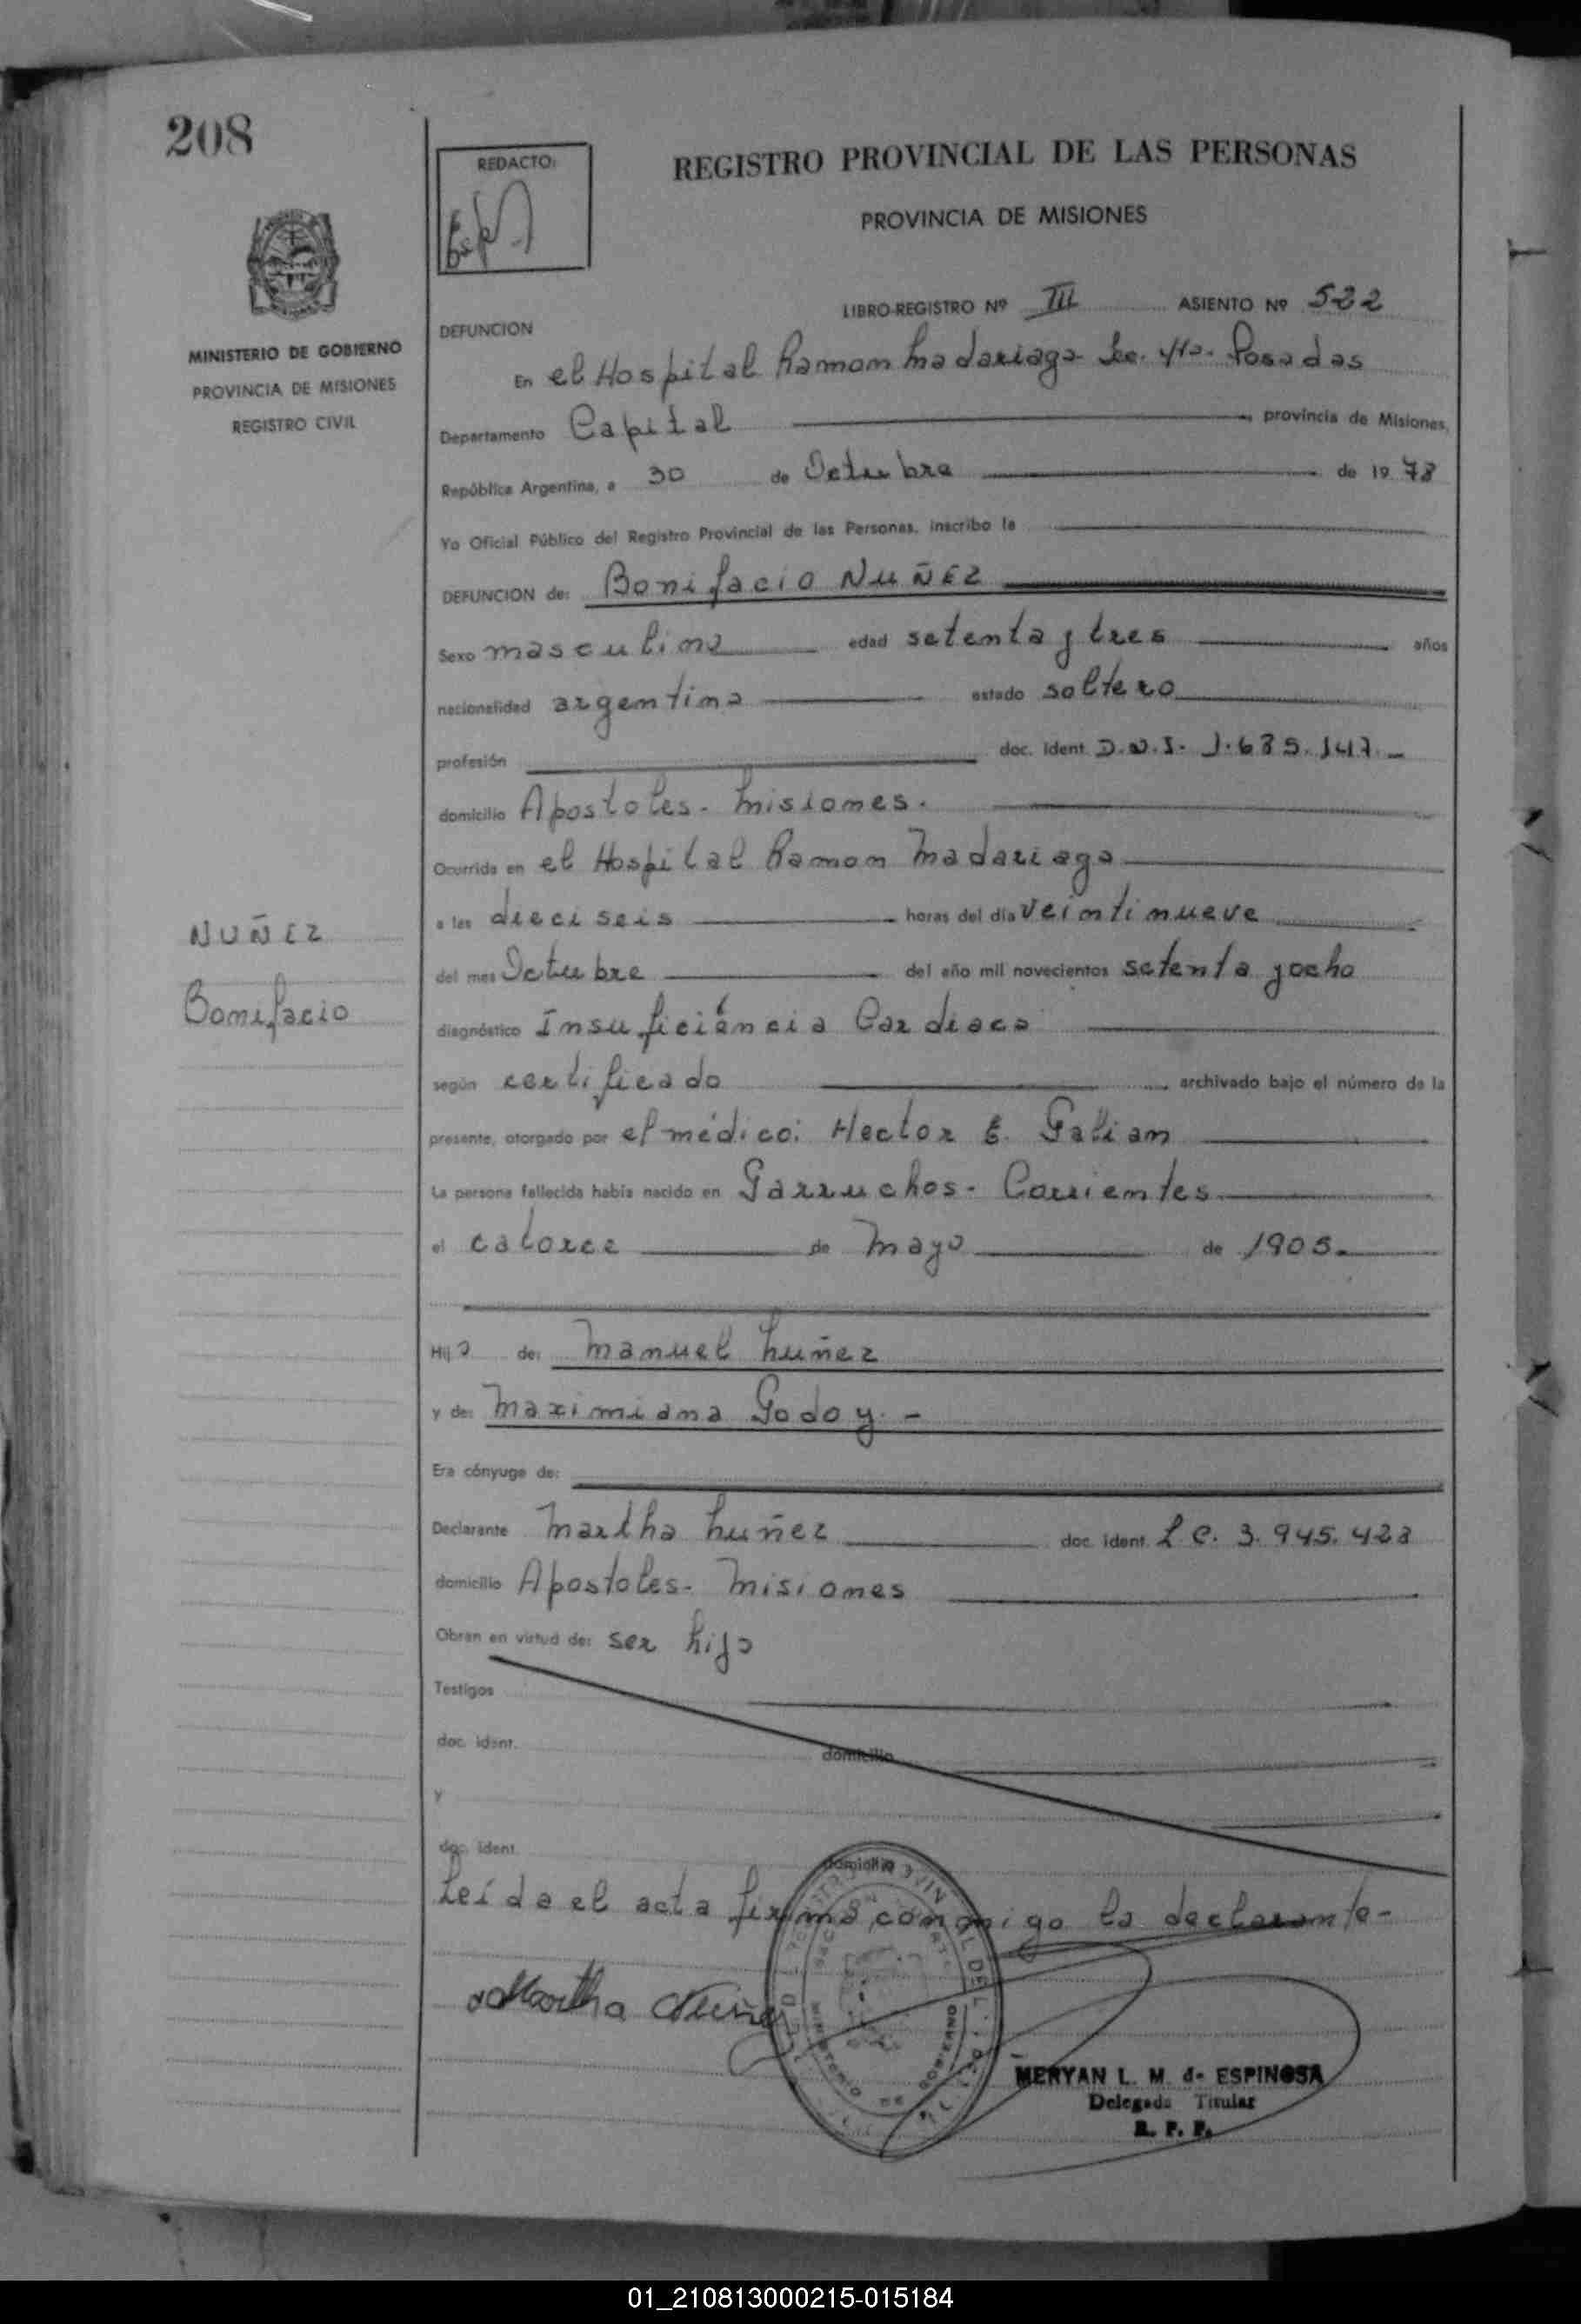 208
REDACTO:
REGISTRO PROVINCIAL DE LAS PERSONAS
PROVINCIA DE MISIONES
MINISTERIO DE GOBIERNO
PROVINCIA DE MISIONES
REGISTRO CIVIL
LIBRO-REGISTRO Nº III ASIENTO Nº 522
DEFUNCION
En el Hospital Ramon Madariaga Posadas
Departamento Capital provincia de Misiones,
República Argentina, a 30 de Octubre de 1978
Yo Oficial Público del Registro Provincial de las Personas, inscribo la
DEFUNCION de: Bonifacio NUÑEZ
Sexo masculino edad setenta y tres años
nacionalidad argentina estado soltero
profesión doc. ident. D.N.I. 1.685.147.-
domicilio Apostoles- Misiones.
Ocurrida en el Hospital Ramon Madariaga
a las dieciseis horas del día veintinueve
del mes Octubre del año mil novecientos setenta y ocho
diagnóstico Insuficiéncia Cardiaca
según certificado archivado bajo el número de la
presente, otorgado por el médico: Hector E. Galian
La persona fallecida había nacido en Garruchos- Corrientes
el catorce de Mayo de 1905.
Hijo de: Manuel Nuñez
y de: Maximiana Godoy.-
Era cónyuge de:
Declarante Martha Nuñez doc. ident. L.C. 3.945.423
domicilio Apostoles- Misiones
Obran en virtud de: ser hija
Testigos
doc. ident. domicilio
y
doc. ident. domicilio
Leída el acta firma conmigo la declarante-
Martha Nuñez
MERYAN L. M. de ESPINOSA
Delegada Titular
R. P. P.
NUÑEZ
Bonifacio
MINISTERIO DE GOBIERNO
01_210813000215-015184